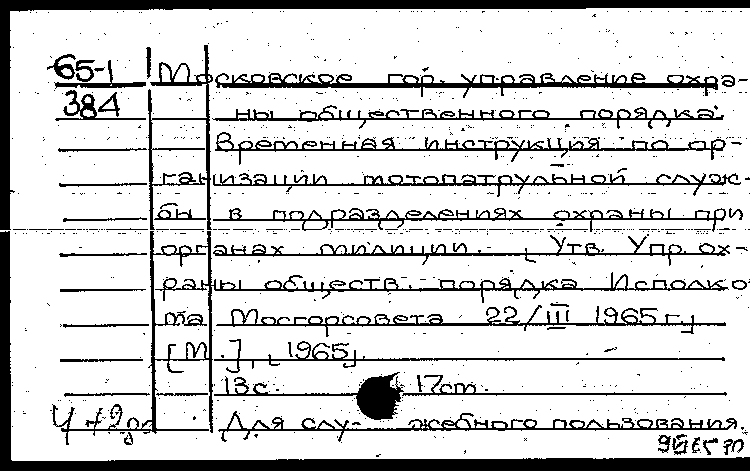 65-1 Московское гор. управление охра-
384 ны общественного порядка.
Временная инструкция по ор-
ганизации мотопатрульной служ-
бы в подразделениях охраны при
органах милиции. [Утв. Упр. ох-
раны обществ. порядка Исполко-
ма Мосгорсовета 22/III 1965 г.]
[М.], [1965].
13 с. 17 см.
Для слу- жебного пользования.